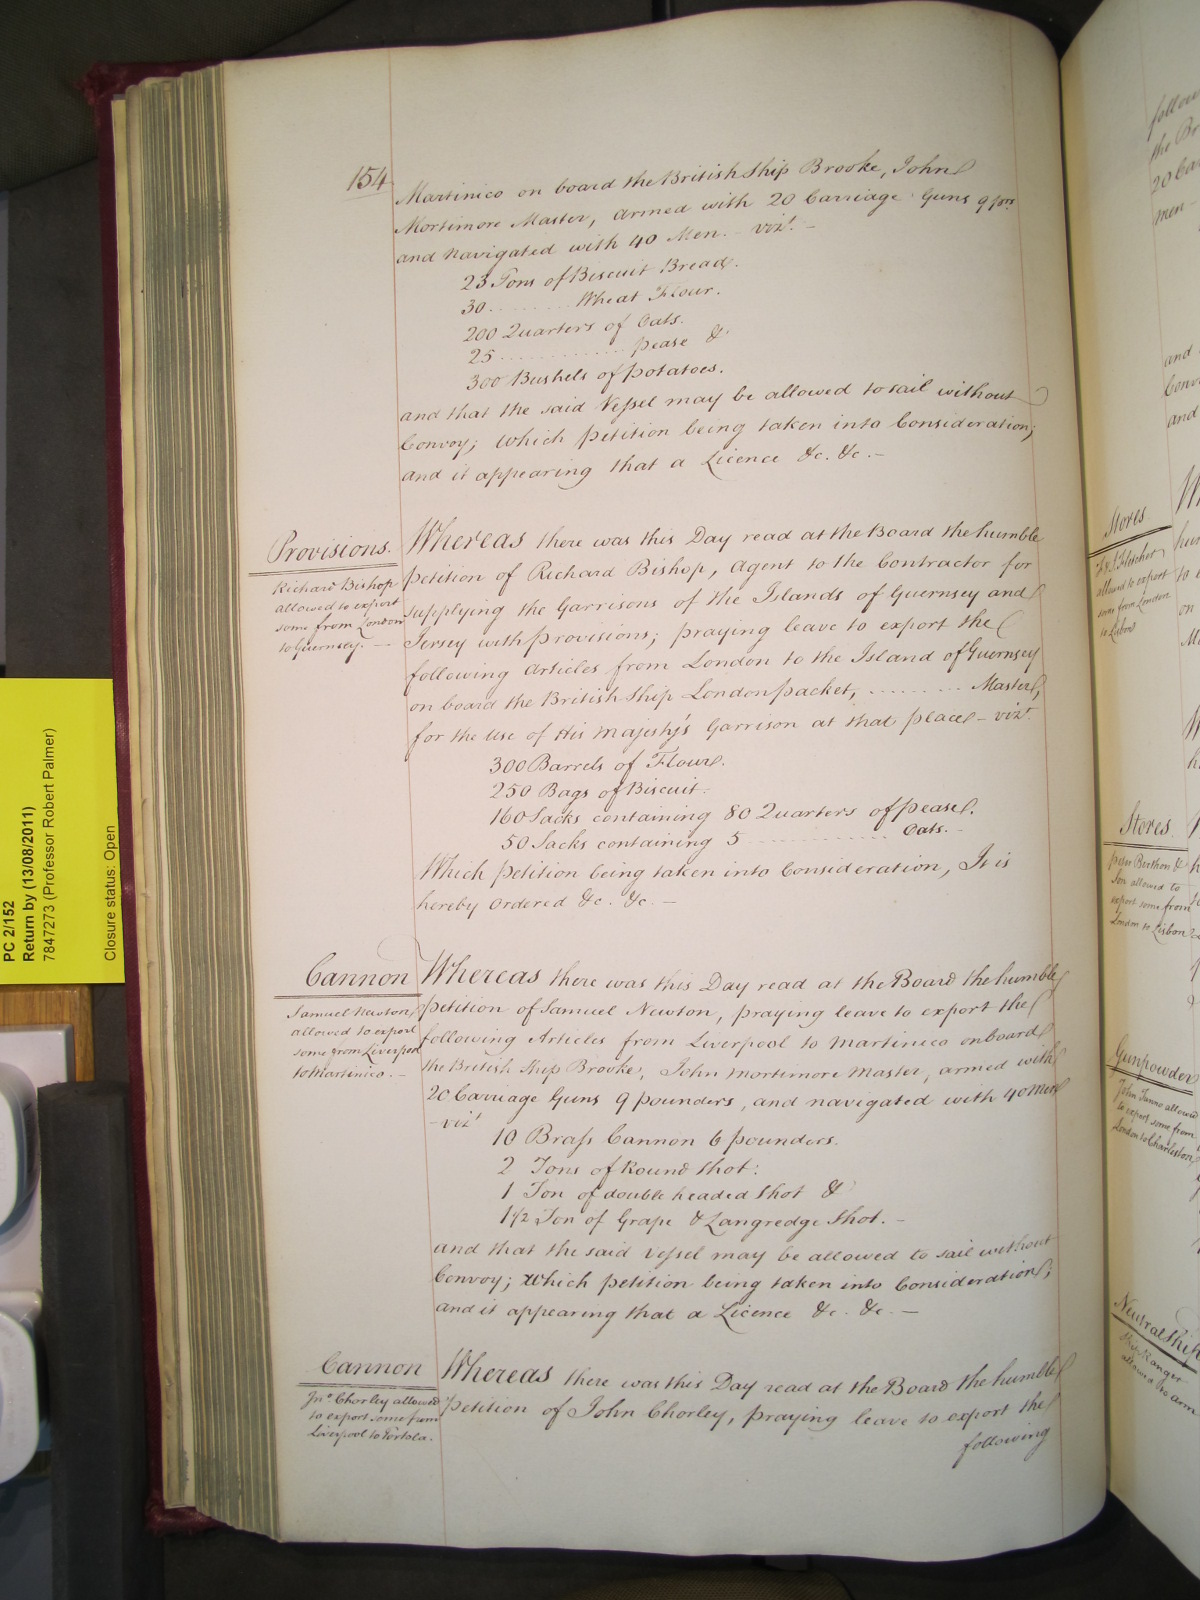 154
Martinico on board the British Ship Brooke, John
Mortimore Master, armed with 20 Carriage Guns 9 prs
and navigated with 40 Men. - vizt. -
23 Tons of Biscuit Bread.
30 ........ Wheat Flour.
200 Quarters of Oats.
25 ............ pease &
300 Bushels of potatoes.
and that the said Vessel may be allowed to sail without
Convoy; Which petition being taken into Consideration;
and it appearing that a Licence &c. &c. -
Provisions.
Richard Bishop
allowed to export
some from London
to Guernsey. -
Whereas there was this Day read at the Board the humble
petition of Richard Bishop, Agent to the Contractor for
supplying the Garrisons of the Islands of Guernsey and
Jersey with provisions; praying leave to export the
following Articles from London to the Island of Guernsey
on board the British Ship London packet, ........ Master,
for the use of His Majesty's Garrison at that place - vizt.
300 Barrels of Flour.
250 Bags of Biscuit.
160 Sacks containing 80 Quarters of pease.
50 Sacks containing 5 ............ Oats. -
Which petition being taken into Consideration, It is
hereby ordered &c. &c. -
Cannon
Samuel Newton
allowed to export
some from Liverpool
to Martinico. -
Whereas there was this Day read at the Board the humble
petition of Samuel Newton, praying leave to export the
following Articles from Liverpool to Martinico onboard
the British Ship Brooke, John Mortimore Master, armed with
20 Carriage Guns 9 pounders, and navigated with 40 Men
- vizt
10 Brass Cannon 6 pounders.
2 Tons of Round Shot.
1 Ton of double headed Shot &
1 1/2 Ton of Grape & Langredge Shot. -
and that the said Vessel may be allowed to sail without
Convoy; Which petition being taken into Consideration;
and it appearing that a Licence &c. &c. -
Cannon
Jno. Chorley allowed
to export some from
Liverpool to Tortola.
Whereas there was this Day read at the Board the humble
Petition of John Chorley, praying leave to export the
following
PC 2/152
Return by (13/08/2011)
7847273 (Professor Robert Palmer)
Closure status: Open
follow
the Br
20 Ca
men -
and
Conv
and
Stores
allowed to export
some from London
to Lisbon
Stores
Son allowed to
export some from
London to Lisbon
Gunpowder
allowed
to export some from
London to Charleston
Neutral Ship